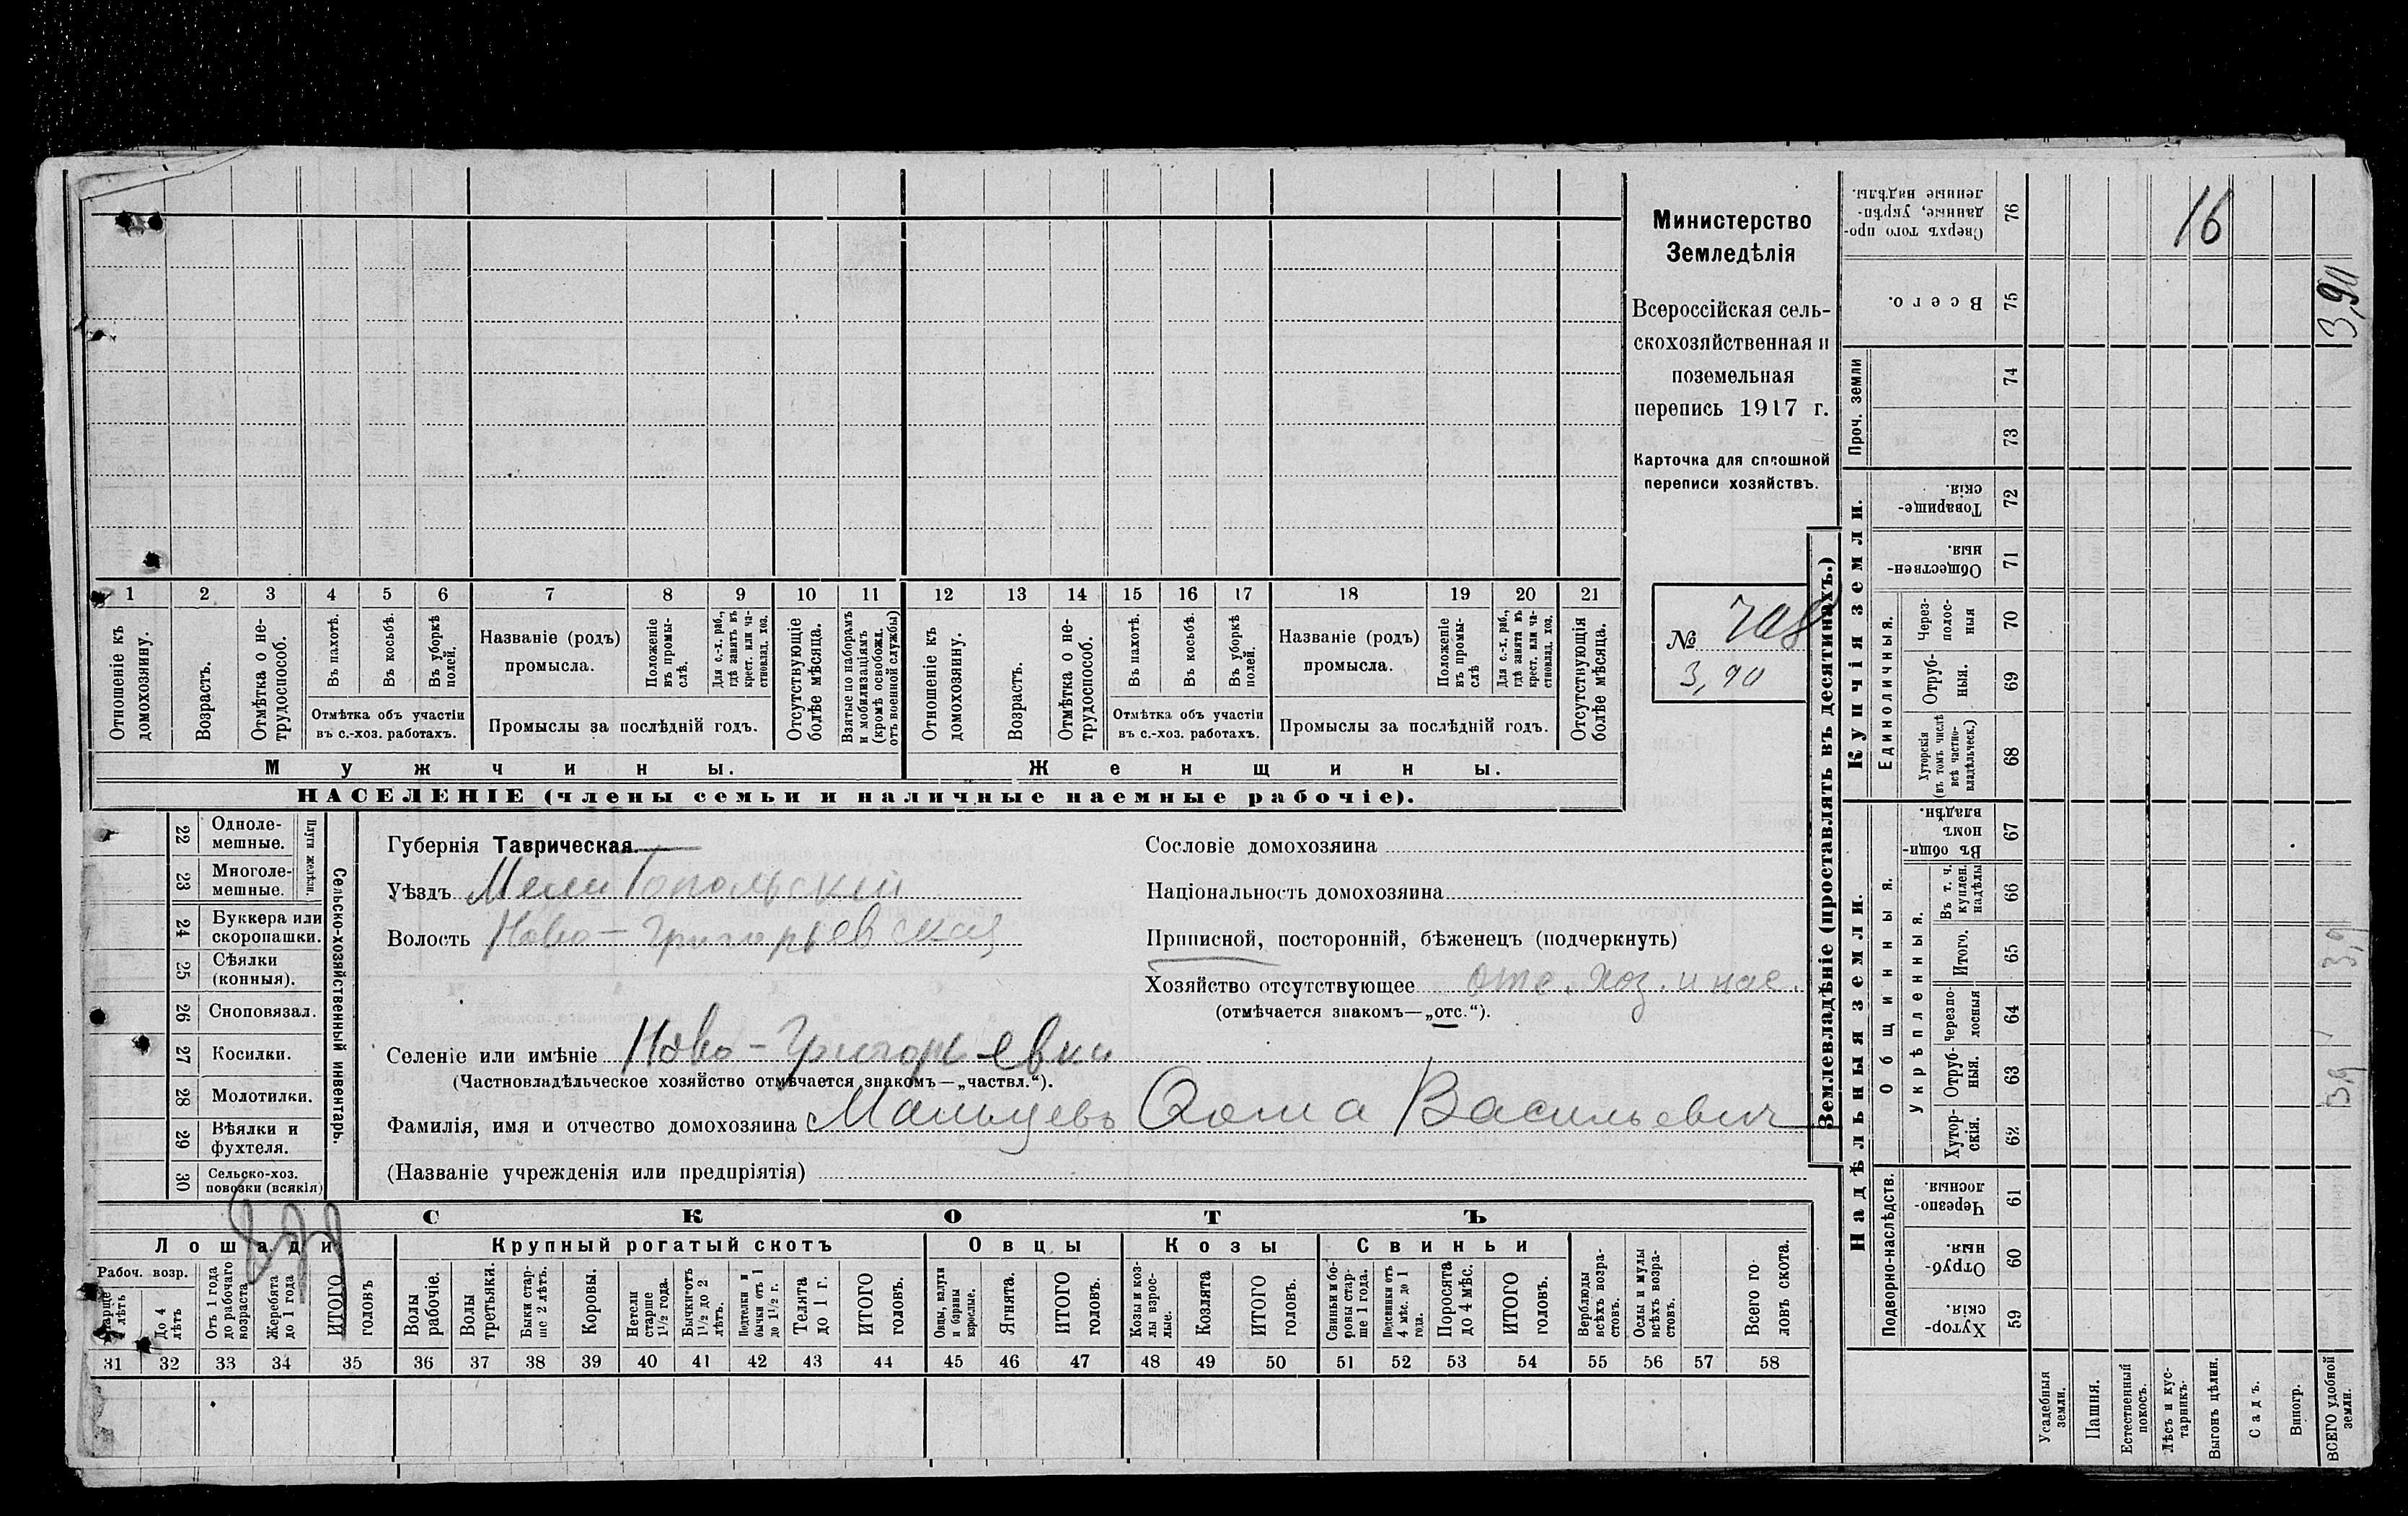 Министерство
Земледѣлія
Всероссійская сель-
скохозяйственная и
поземельная
перепись 1917 г.
Карточка для сплошной
переписи хозяйствъ.
№ 708
3,90
1 2 3 4 5 6 7 8 9 10 11 12 13 14 15 16 17 18 19 20 21
Отношеніе къ домохозяину.
Возрастъ.
Отмѣтка о не-трудоспособ.
Въ пахотѣ.
Въ косьбѣ.
Въ уборкѣ полей.
Отмѣтка объ участіи
въ с.-хоз. работахъ.
Названіе (родъ)
промысла.
Положеніе въ промы-слѣ.
Для с.-х. раб., гдѣ занятъ въ крест. или ча-стновлад. хоз.
Промыслы за послѣдній годъ.
Отсутствующіе болѣе мѣсяца.
Взятые по наборамъ и мобилизаціямъ (кромѣ освобожд. отъ военной службы)
Отношеніе къ домохозяину.
Возрастъ.
Отмѣтка о не-трудоспособ.
Въ пахотѣ.
Въ косьбѣ.
Въ уборкѣ полей.
Отмѣтка объ участіи
въ с.-хоз. работахъ.
Названіе (родъ)
промысла.
Положеніе въ промы-слѣ
Для с.-х. раб., гдѣ занята въ крест. или ча-стновлад. хоз.
Промыслы за послѣдній годъ.
Отсутствующія болѣе мѣсяца.
Мужчины.
Женщины.
НАСЕЛЕНІЕ (члены семьи и наличные наемные рабочіе).
Сельско-хозяйственный инвентарь.
Плуги желѣзн.
22 Одноле-мешные.
23 Многоле-мешные.
24 Буккера или скоропашки.
25 Сѣялки (конныя).
26 Сноповязал.
27 Косилки.
28 Молотилки.
29 Вѣялки и фухтеля.
30 Сельско-хоз. повозки (всякія)
Губернія Таврическая.
Уѣздъ Мелитопольскій
Волость Ново-Григорьевская
Сословіе домохозяина
Національность домохозяина
Приписной, посторонній, бѣженецъ (подчеркнуть)
Хозяйство отсутствующее отс. хоз. и нас.
(отмѣчается знакомъ—„отс.“).
Селеніе или имѣніе Ново-Григорьевка
(Частновладѣльческое хозяйство отмѣчается знакомъ—„частвл.“).
Фамилія, имя и отчество домохозяина Мальцевъ Фома Васильевич
(Названіе учрежденія или предпріятія)
СКОТЪ
Лошади
Крупный рогатый скотъ
Овцы
Козы
Свиньи
Рабоч. возр.
Старше 4 лѣтъ
До 4 лѣтъ
Отъ 1 года до рабочаго возраста
Жеребята до 1 года
ИТОГО головъ
Волы рабочіе.
Волы третьяки.
Быки стар-ше 2 лѣтъ.
Коровы.
Нетели старше 1½ года.
Бычки отъ 1½ до 2 лѣтъ.
Подтелки и бычки отъ 1 до 1½ г.
Телята до 1 г.
ИТОГО головъ.
Овцы, валухи и бараны взрослые.
Ягнята.
ИТОГО головъ.
Козы и коз-лы взрос-лые.
Козлята
ИТОГО головъ.
Свиньи и бо-ровы стар-ше 1 года.
Подсвинки отъ 4 мѣс. до 1 года.
Поросята до 4 мѣс.
ИТОГО головъ.
Верблюды всѣхъ возра-стовъ.
Ослы и мулы всѣхъ возра-стовъ.
Всего го-ловъ скота.
31 32 33 34 35 36 37 38 39 40 41 42 43 44 45 46 47 48 49 50 51 52 53 54 55 56 57 58
Землевладѣніе (проставлять въ десятинахъ.)
Купчія земли.
Проч. земли
Единоличныя.
Надѣльныя земли.
Общинныя.
Укрѣпленныя.
Подворно-наслѣдств.
Сверхъ того про-данные, укрѣп-ленные надѣлы. 76
16
Всего. 75
3,90
74
73
Товарище-скія. 72
Обществен-ныя. 71
Через-полос-ныя 70
Отруб-ныя. 69
Хуторскія (въ томъ числѣ всѣ частно-владѣльческ.) 68
Въ общи-номъ владѣн. 67
Въ т. ч. куплен. надѣлы 66
Итого. 65
Черезпо-лосныя 64
Отруб-ныя. 63
Хутор-скія. 62
Черезпо-лосныя 61
Отруб-ныя. 60
Хутор-скія. 59
Усадебныя земли.
Пашня.
Естественный покосъ.
Лѣсъ и кус-тарникъ.
Выгонъ цѣлин.
Садъ.
Виногр.
ВСЕГО удобной земли.